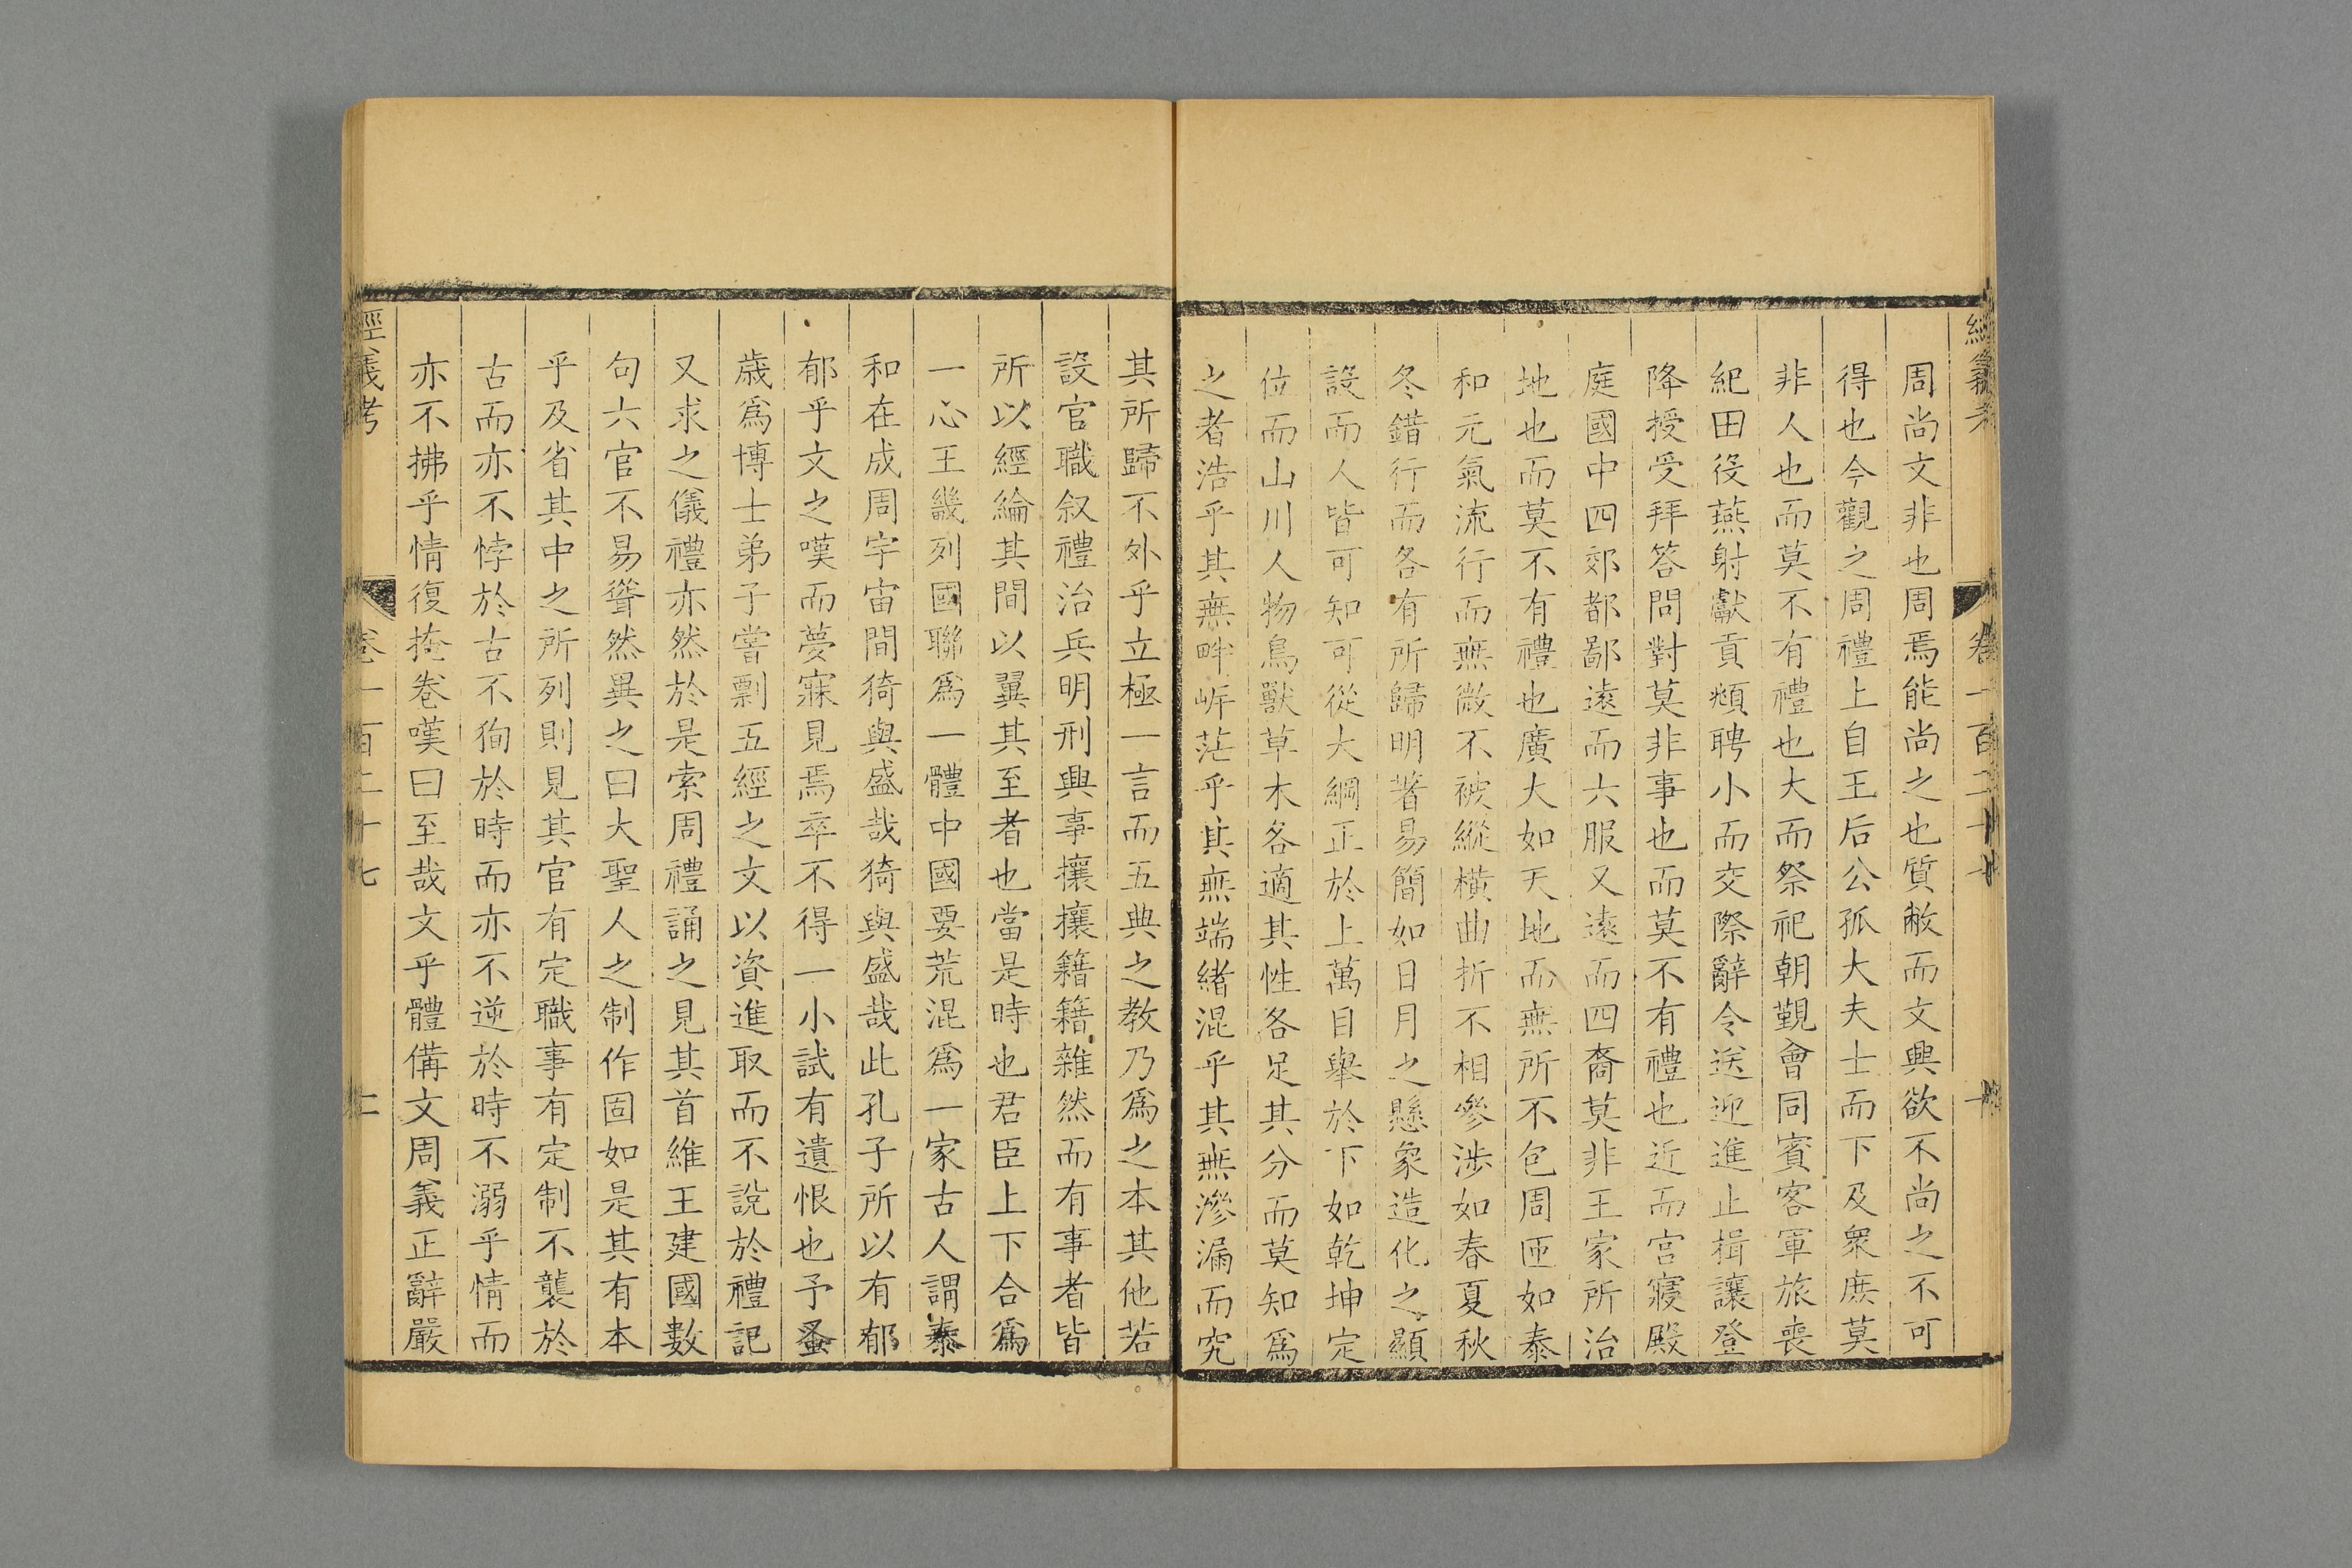 經義考 卷一百二十七 十
周尚文非也周焉能尚之也質敝而文興欲不尚之不可
得也今觀之周禮上自王后公孤大夫士而下及衆庶莫
非人也而莫不有禮也大而祭祀朝覲會同賓客軍旅喪
紀田役燕射獻貢頫聘小而交際辭令送迎進止揖讓登
降授受拜答問對莫非事也而莫不有禮也近而宫寢殿
庭國中四郊都鄙遠而六服又遠而四裔莫非王家所治
地也而莫不有禮也廣大如天地而無所不包周匝如泰
和元氣流行而無微不被縱橫曲折不相參涉如春夏秋
冬錯行而各有所歸明著易簡如日月之懸象造化之顯
設而人皆可知可從大綱正於上萬目舉於下如乾坤定
位而山川人物鳥獸草木各適其性各足其分而莫知爲
之者浩乎其無畔岸茫乎其無端緒混乎其無滲漏而究
其所歸不外乎立極一言而五典之教乃爲之本其他若
設官職叙禮治兵明刑興事攘攘籍籍雜然而有事者皆
所以經綸其間以翼其至者也當是時也君臣上下合爲
一心王畿列國聯爲一體中國要荒混爲一家古人謂泰
和在成周宇宙間猗與盛哉猗與盛哉此孔子所以有郁
郁乎文之嘆而夢寐見焉卒不得一小試有遺恨也予蚤
歲爲博士弟子嘗剽五經之文以資進取而不說於禮記
又求之儀禮亦然於是索周禮誦之見其首維王建國數
句六官不易聳然異之曰大聖人之制作固如是其有本
乎及省其中之所列則見其官有定職事有定制不襲於
古而亦不悖於古不狥於時而亦不逆於時不溺乎情而
亦不拂乎情復掩卷嘆曰至哉文乎體備文周義正辭嚴
經義考 卷一百二十七